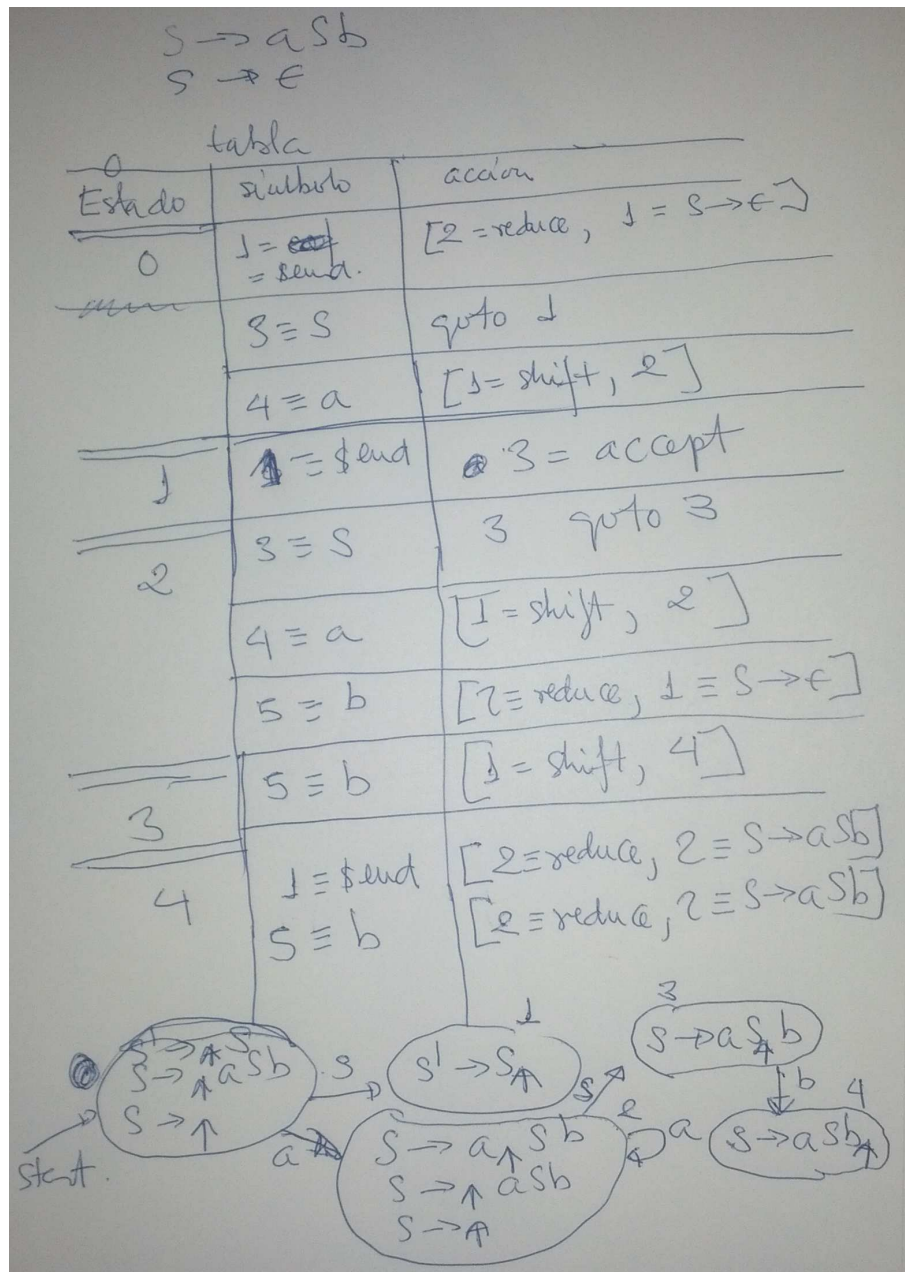 S → aSb
S → ϵ
tabla
Estado símbolo acción
0 1 = = $end. [2 = reduce, 1 = S → ϵ]
3 ≡ S goto 1
4 ≡ a [1 = shift, 2]
1 1 ≡ $end 3 = accept
2 3 ≡ S 3 goto 3
4 ≡ a [1 = shift, 2]
5 ≡ b [2 ≡ reduce, 1 ≡ S → ϵ]
3 5 ≡ b [1 = shift, 4]
4 1 ≡ $end [2 ≡ reduce, 2 ≡ S → aSb]
5 ≡ b [2 ≡ reduce, 2 ≡ S → aSb]
S' → ↑S
S → ↑aSb
S → ↑
start.
S
a
1
S' → S↑
2
S → a↑Sb
S → ↑aSb
S → ↑
a
S
3
S → aS↑b
b
4
S → aSb↑